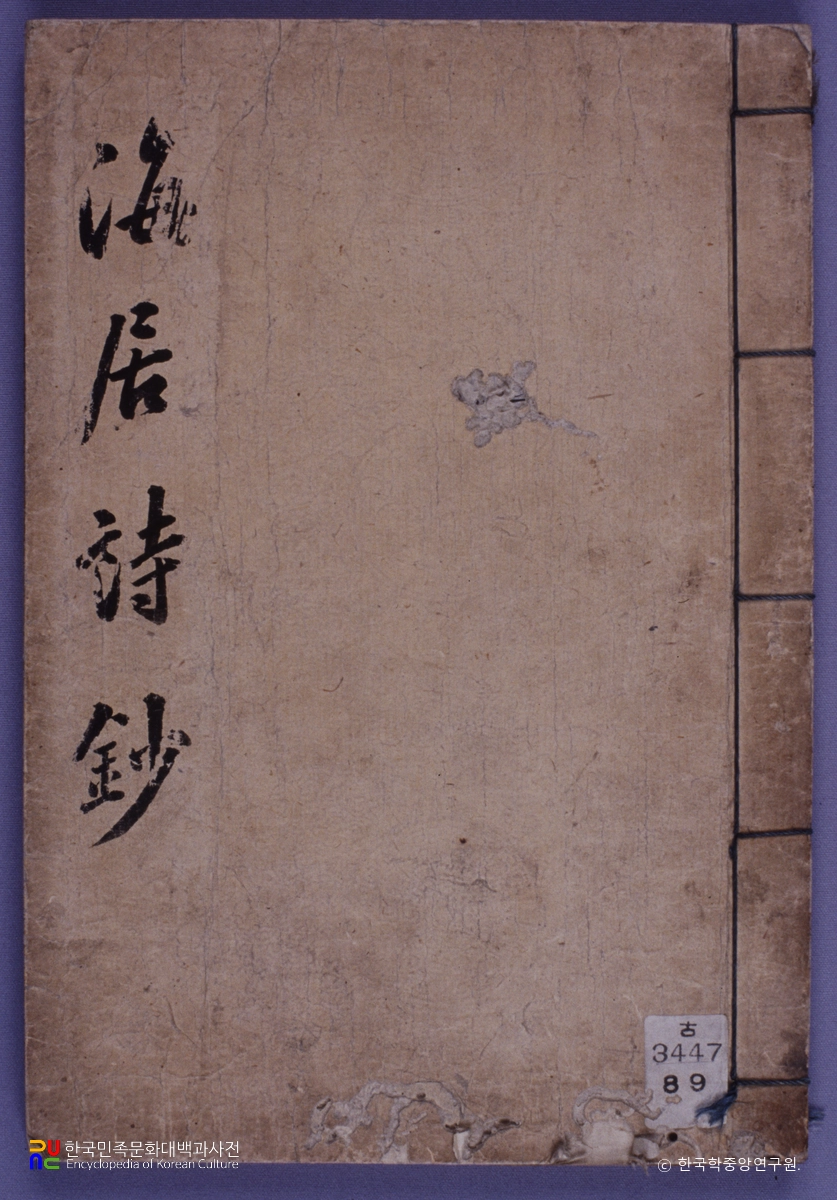 海居詩鈔
古
3447
89
한국민족문화대백과사전
Encyclopedia of Korean Culture
© 한국학중앙연구원.